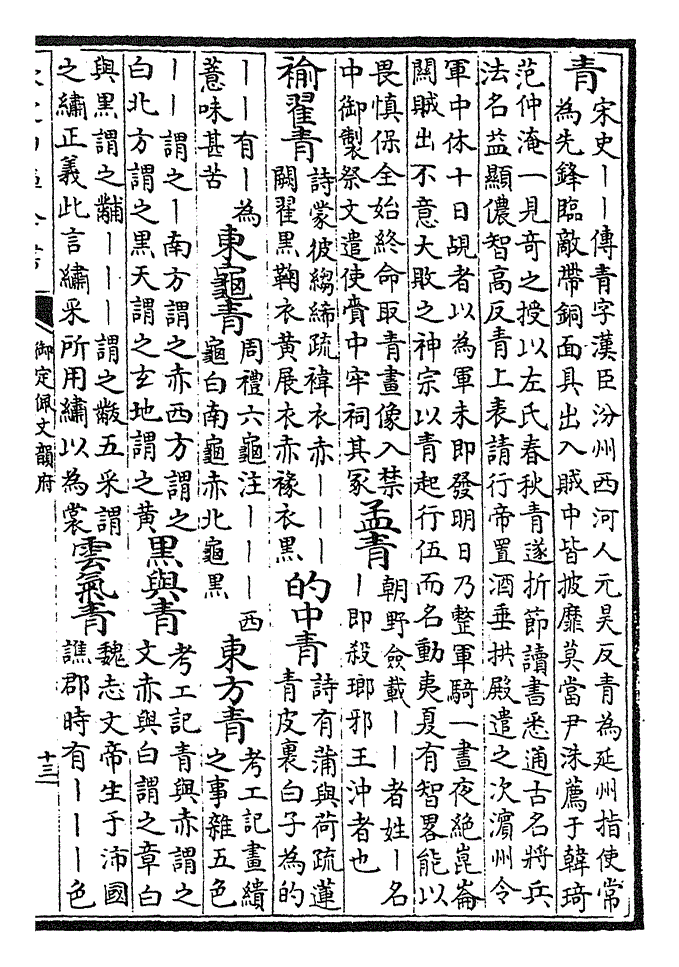 青
宋史｜｜傳青字漢臣汾州西河人元昊反青為延州指使常
為先鋒臨敵帶銅面具出入賊中皆披靡莫當尹洙薦于韓琦
范仲淹一見奇之授以左氏春秋青遂折節讀書悉通古名將兵
法名益顯儂智高反青上表請行帝置酒垂拱殿遣之次濵州令
軍中休十日覘者以為軍未即發明日乃整軍騎一晝夜絶崑崙
關賊出不意大敗之神宗以青起行伍而名動夷夏有智畧能以
畏慎保全始終命取青畫像入禁
中御製祭文遣使賫中牢祠其冢
孟青
朝野僉載｜｜者姓｜名
｜即殺瑯邪王沖者也
褕翟青
詩蒙彼縐絺疏褘衣赤｜｜｜
闕翟黑鞠衣黄展衣赤褖衣黑
的中青
詩有蒲與荷疏蓮
青皮裏白子為的
｜｜有｜為
薏味甚苦
東龜青
周禮六龜注｜｜｜西
龜白南龜赤北龜黑
東方青
考工記畫繢
之事雜五色
｜｜謂之｜南方謂之赤西方謂之
白北方謂之黑天謂之玄地謂之黄
黑與青
考工記青與赤謂之
文赤與白謂之章白
與黑謂之黼｜｜｜謂之黻五采謂
之繡正義此言繡采所用繡以為裳
雲氣青
魏志文帝生于沛國
譙郡時有｜｜｜色
御定佩文韻府
十三